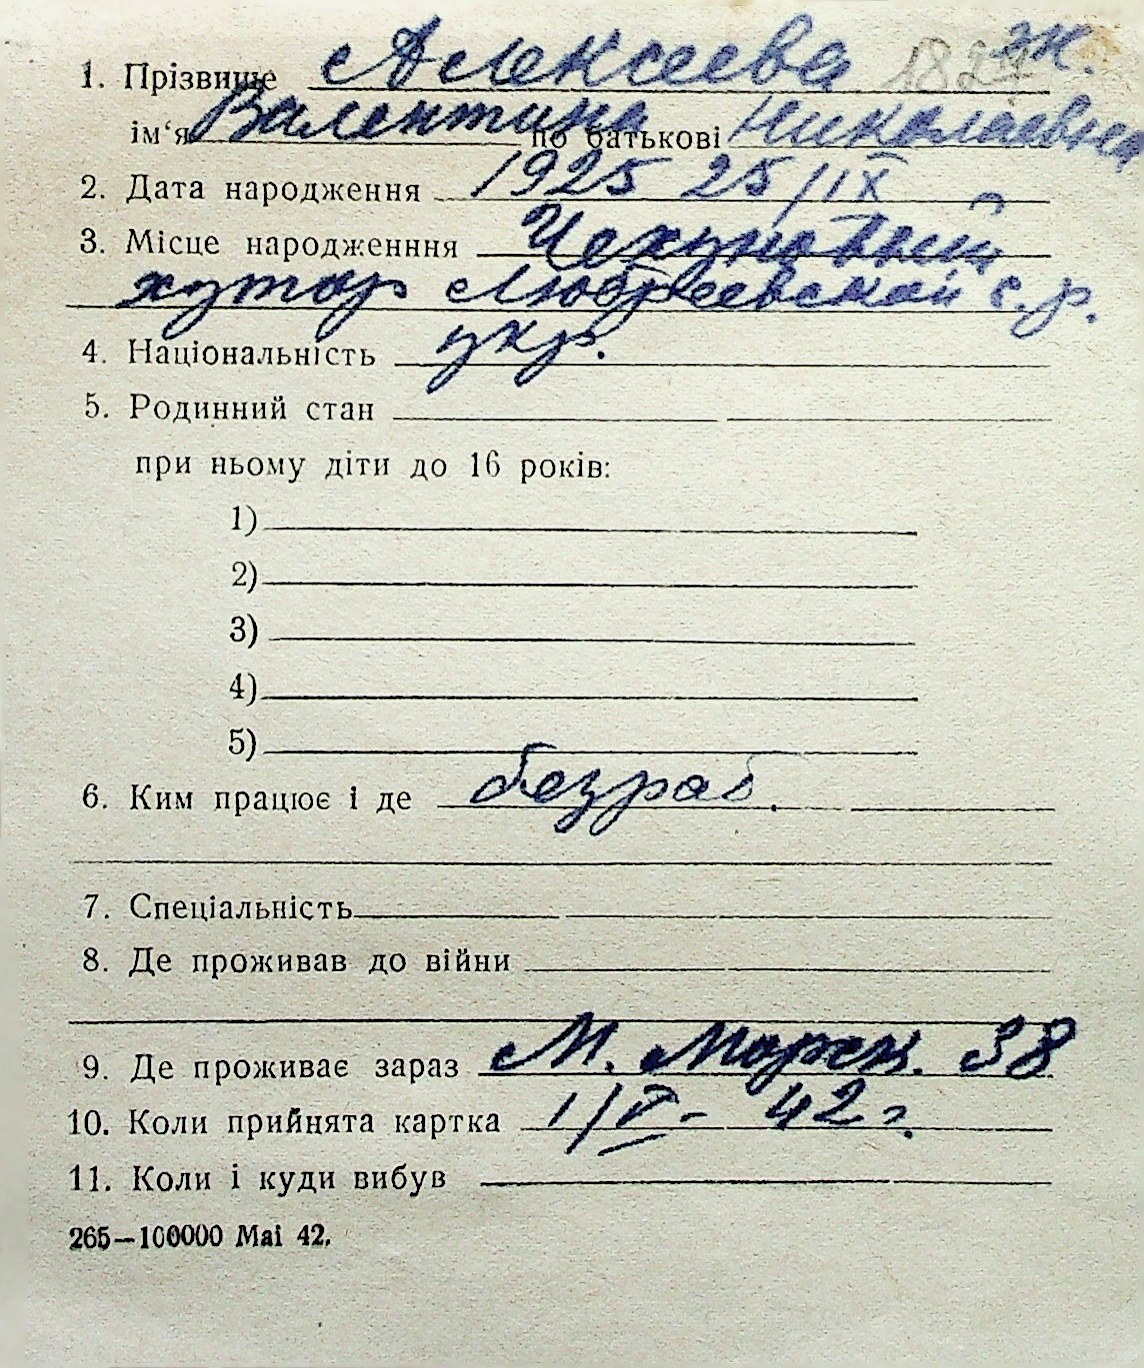 1. Прізвище Алексеева 182 ж.
ім‘я Валентина по батькові Николаевна
2. Дата народження 1925 25/IX
3. Місце народженння Чехуновый
хутор с.р.
4. Національність укр.
5. Родинний стан
при ньому діти до 16 років:
1)
2)
3)
4)
5)
6. Ким працює і де безраб.
7. Спеціальність
8. Де проживав до війни
9. Де проживає зараз М. Морск. 38
10. Коли прийнята картка 1/V- 42 г.
11. Коли і куди вибув
265—100000 Mai 42.